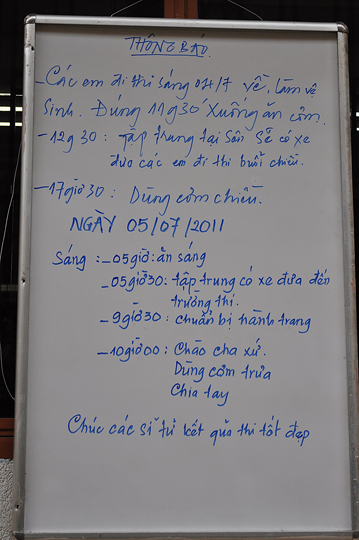 THÔNG BÁO
- Các em đi thi sáng 04/7 về, làm vệ
sinh. Đúng 11g30' xuống ăn cơm.
- 12g30: Tập trung tại sân sẽ có xe
đưa các em đi thi buổi chiều.
- 17giờ30: Dùng cơm chiều.
NGÀY 05/07/2011
Sáng: - 05giờ: ăn sáng
- 05giờ30: tập trung có xe đưa đến
trường thi.
- 9giờ30: chuẩn bị hành trang
- 10giờ00: Chào cha xứ.
Dùng cơm trưa
Chia tay
Chúc các sĩ tử kết quả thi tốt đẹp